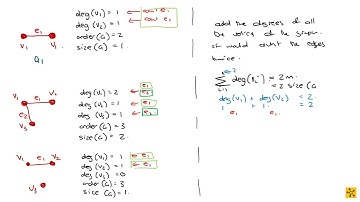 e₁
V₁ V₁
G₁
deg(V₁) = 1 ← cov e₁
deg(V₂) = 1 ← cov e₁
order(G) = 2
size(G) = 1.
V₁ e₁ V₂
e₂
V₃
deg(V₁) = 2 ← e₁ e₂
deg(V₂) = 1 ← e₁
deg(V₃) = 1 ← e₂
order(G) = 3
size(G) = 2.
V₁ e₁ V₂
V₃
deg(V₁) = 1 ← e₁
deg(V₂) = 1 ← e₁
deg(V₃) = 0
order(G) = 3
size(G) = 1.
add the degrees of all
the vertices of the graph.
it would count the edges
twice.
∑ deg(vᵢ) = 2m.
= 2 size(G
deg(V₁) + deg(V₂) = 2.
1 + 1 = 2
e₁ e₁